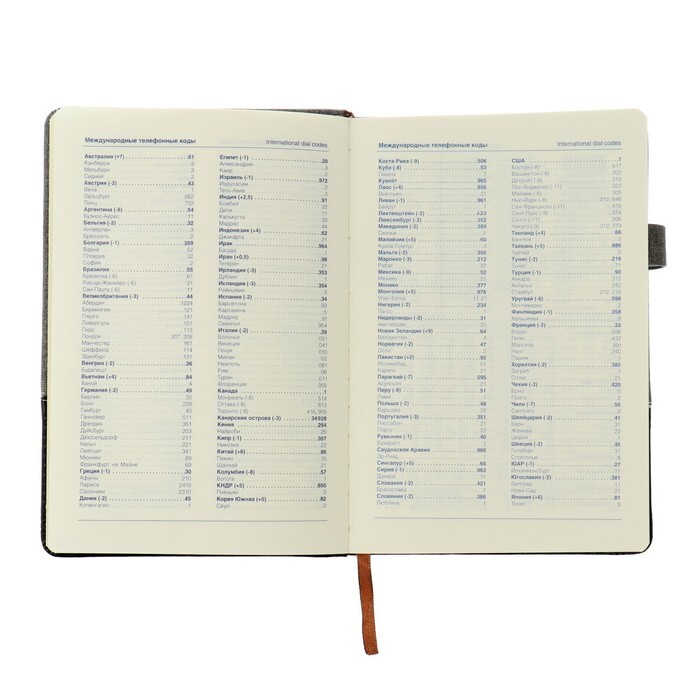 Международные телефонные коды
International dial codes
Австралия (+7) 61
Канберра 2
Мельбурн 3
Сидней 2
Австрия (-2) 43
Вена 1
Зальцбург 662
Линц 732
Аргентина (-6) 54
Буэнос-Айрес 11
Бельгия (-2) 32
Антверпен 3
Брюссель 2
Болгария (-1) 359
Варна 52
Пловдив 32
София 2
Бразилия 55
Бразилиа (-6) 61
Рио-де-Жанейро (-6) 21
Сан-Паулу (-6) 11
Великобритания (-3) 44
Абердин 1224
Бирмингем 121
Глазго 141
Ливерпуль 151
Лидс 113
Лондон 207, 208
Манчестер 161
Шеффилд 114
Эдинбург 131
Венгрия (-2) 36
Будапешт 1
Вьетнам (+4) 84
Ханой 4
Германия (-2) 49
Берлин 30
Бонн 228
Гамбург 40
Ганновер 511
Дрезден 351
Дуйсбург 203
Дюссельдорф 211
Кельн 221
Лейпциг 341
Мюнхен 89
Франкфурт на Майне 69
Греция (-1) 30
Афины 210
Лариса 2410
Салоники 2310
Дания (-2) 45
Копенгаген 1
Египет (-1) 20
Александрия
Каир 2
Израиль (-1) 972
Иерусалим 2
Тель-Авив 3
Индия (+2,5) 91
Бомбей
Дели 11
Калькутта 33
Мадрас 44
Индонезия (+4) 62
Джакарта 21
Ирак 964
Иран (+0,5) 98
Тегеран 21
Ирландия (-3) 353
Дублин 1
Исландия (-3) 354
Рейкьявик
Испания (-2) 34
Барселона
Картахена
Мадрид 91
Севилья
Италия (-2) 39
Болонья 051
Венеция 041
Генуя 010
Милан 02
Неаполь 081
Рим 06
Турин 011
Флоренция 055
Канада 1
Монреаль (-8) 514
Оттава (-8) 613
Торонто (-8) 416, 905
Канарские острова (-3) 34928
Кения 254
Найроби 20
Кипр (-1) 357
Никозия 22
Китай (+6) 86
Пекин 10
Шанхай 21
Колумбия (-8) 57
Богота 1
КНДР (+5) 850
Пхеньян 2
Корея Южная (+5) 82
Сеул 2
Международные телефонные коды
International dial codes
Коста-Рика (-9) 506
Куба (-8) 53
Гавана 7
Кувейт 965
Лаос (+4) 856
Вьентьян 21
Ливан (-1) 961
Бейрут 1
Лихтенштейн (-2) 423
Люксембург (-2) 352
Македония (-2) 389
Скопье
Малайзия (+5) 60
Куала-Лумпур 3
Мальта (-2) 356
Марокко (-3) 212
Рабат 37
Мексика (-9) 52
Мехико 55
Монако 377
Монголия (+5) 976
Улан-Батор 11, 21
Нигерия (-2) 234
Лагос 1
Нидерланды (-2) 31
Амстердам 20
Новая Зеландия (+9) 64
Веллингтон 4
Норвегия (-2) 47
Осло
Пакистан (+2) 92
Исламабад
Карачи 21
Парагвай (-7) 595
Асунсьон 21
Перу (-8) 51
Лима 1
Польша (-2) 48
Варшава 22
Португалия (-3) 351
Лиссабон 21
Порту 22
Румыния (-1) 40
Бухарест
Саудовская Аравия 966
Эр-Рияд 1
Сингапур (+5) 65
Сирия (-1) 963
Дамаск 11
Словакия (-2) 421
Братислава 2
Словения (-2) 386
Любляна 1
США 1
Бостон (-8) 617
Вашингтон (-8) 202
Детройт (-8) 313
Лос-Анджелес (-11) 323
Майами (-8) 305
Нью-Йорк (-8) 212, 646
Сан-Франциско (-11) 415
Сент-Луис (-9) 314
Сиэтл (-11) 206
Чикаго (-9) 312, 773
Таиланд (+4) 66
Бангкок 2
Тайвань (+5) 886
Тайпей 2
Тунис (-2) 216
Тунис 71
Турция (-1) 90
Анкара 312
Анталья 242
Стамбул 212, 216
Уругвай (-6) 598
Монтевидео 2
Финляндия (-1) 358
Хельсинки 9
Франция (-2) 33
Бордо
Лион
Марсель
Нант
Париж
Хорватия (-2) 385
Загреб 1
Сплит 21
Чехия (-2) 420
Брно
Прага 2
Чили (-7) 56
Сантьяго 2
Швейцария (-2) 41
Берн 31
Женева 22
Цюрих
Швеция (-2) 46
Гетеборг 31
Стокгольм 8
ЮАР (-1) 27
Йоханнесбург 11
Югославия (-2) 381
Белград 11
Нови-Сад 21
Япония (+6) 81
Токио 3